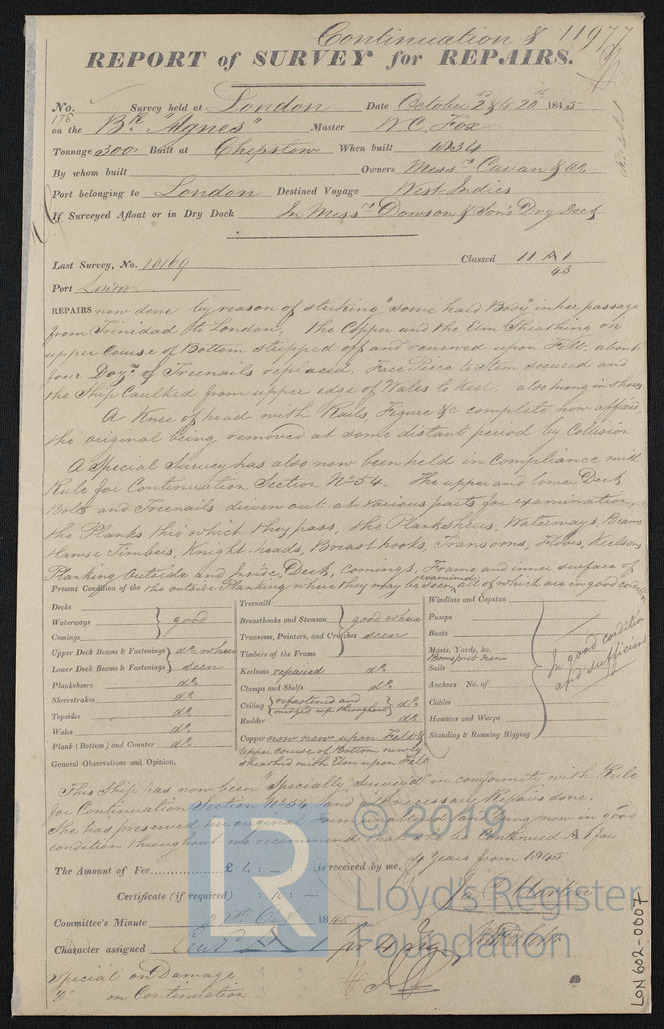 Continuation & 11977
REPORT of SURVEY for REPAIRS.
No. Survey held at London Date October 2d & to 20th 1845
178
on the Bk "Agnes" Master W C. Fox
Tonnage 300 Built at Chepstow When built 1834
By whom built Owners Messrs Cavan & Co.
Port belonging to London Destined Voyage West Indies
If Surveyed Afloat or in Dry Dock In Messrs Dowson & Son's Dry Dock
Last Survey, No. 10169 Classed 11 A 1
43
Port London
REPAIRS now done by reason of striking "some hard Body" in her passage
from Trinidad to London, the Copper and the Elm Sheathing on
upper Course of Bottom stripped off and renewed upon Felt about
four Dozn of Treenails replaced. Face Piece to Stem secured and
the Ship Caulked from upper edge of Wales to Keel also hung in shores
A Knee of head with Rails, Figure &c complete now affixed,
the original being removed at some distant period by Collision
A Special Survey has also now been held in Compliance with
Rule for Continuation Section No 54. The upper and lower Deck
Bolts and Treenails driven out at various parts for examination,
the Planks thro which they pass, the Planksheers, Waterways, Beams
Hawse Timbers, Knight-heads, Breasthooks, Transoms, Floors, Keelsons
Planking Outside and Inside, Deck, Comings, Frame and inner surface of
Present Condition of the the outside Planking where they may be seen, examined all of which are in good condition
Decks
Waterways good
Comings
Upper Deck Beams & Fastenings do where
Lower Deck Beams & Fastenings seen
Planksheers do
Sheerstrakes do
Topsides do
Wales do
Plank (Bottom) and Counter do
Treenails
Breasthooks and Stemson good where
Transoms, Pointers, and Crutches seen
Timbers of the Frame
Keelsons repaired do
Clamps and Shelfs do
Ceiling refastened and wedged up throughout do
Rudder do
Copper now new upon Felt &
upper course of Bottom newly
sheathed with Elm upon Felt
Windlass and Capstan
Pumps
Boats
Masts, Yards, &c.
Bowsprit new
Sails
Anchors No. of
Cables
Hawsers and Warps
Standing & Running Rigging
In good condition
and sufficient
General Observations and Opinion,
This Ship has now been "Specially Survey'd" in conformity with Rule
for Continuation Section No 54 and all necessary Repairs done.
She has preserved her original Form and being now in good
condition throughout we recommend that to be Continued A 1 for
4 Years from 1845
The Amount of Fee £ 4 : - : is received by me,
Certificate (if required) : 10 : -
Committee's Minute 21st Octr 1845
Character assigned A 1 for 4 years
Special on Damage
"Do" on Continuation
LR
© 2019
Lloyd's Register
Foundation
LON 602-0007